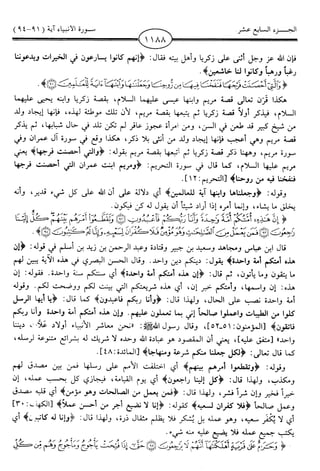 الجزء السابع عشر ١١٨٨ سورة الأنبياء آية (٩١-٩٤)
فإن الله عز وجل أثنى على زكريا وأهل بيته فقال: ﴿إنهم كانوا يسارعون في الخيرات ويدعوننا
رغباً ورهباً وكانوا لنا خاشعين﴾.
﴿وَالَّتِي أَحْصَنَتْ فَرْجَهَا فَنَفَخْنَا فِيهَا مِن رُّوحِنَا وَجَعَلْنَاهَا وَابْنَهَا آيَةً لِّلْعَالَمِينَ﴾
هكذا قرن تعالى قصة مريم وابنها عيسى عليهما السلام، بقصة زكريا وابنه يحيى عليهما
السلام، فيذكر أولاً قصة زكريا ثم يتبعها بقصة مريم، لأن تلك موطئة لهذه، فإنها إيجاد ولد
من شيخ كبير قد طعن في السن، ومن امرأة عجوز عاقر لم تكن تلد في حال شبابها، ثم يذكر
قصة مريم وهي أعجب فإنها إيجاد ولد من أنثى بلا ذكر، هكذا وقع في سورة آل عمران وفي
سورة مريم، وههنا ذكر قصة زكريا ثم أتبعها بقصة مريم بقوله: ﴿والتي أحصنت فرجها﴾ يعني
مريم عليها السلام، كما قال في سورة التحريم: ﴿ومريم ابنت عمران التي أحصنت فرجها
فنفخنا فيه من روحنا﴾ [التحريم: ١٢].
وقوله: ﴿وجعلناها وابنها آية للعالمين﴾ أي دلالة على أن الله على كل شيء قدير، وأنه
يخلق ما يشاء، وإنما أمره إذا أراد شيئاً أن يقول له كن فيكون.
﴿إِنَّ هَٰذِهِ أُمَّتُكُمْ أُمَّةً وَاحِدَةً وَأَنَا رَبُّكُمْ فَاعْبُدُونِ وَتَقَطَّعُوا أَمْرَهُم بَيْنَهُمْ كُلٌّ إِلَيْنَا
رَاجِعُونَ فَمَن يَعْمَلْ مِنَ الصَّالِحَاتِ وَهُوَ مُؤْمِنٌ فَلَا كُفْرَانَ لِسَعْيِهِ وَإِنَّا لَهُ كَاتِبُونَ﴾
قال ابن عباس ومجاهد وسعيد بن جبير وقتادة وعبد الرحمن بن زيد بن أسلم في قوله: ﴿إن
هذه أمتكم أمة واحدة﴾ يقول: دينكم دين واحد. وقال الحسن البصري في هذه الآية يبين لهم
ما يتقون وما يأتون، ثم قال: ﴿إن هذه أمتكم أمة واحدة﴾ أي سنتكم سنة واحدة. فقوله: إن
هذه: إن واسمها، وأمتكم خبر إن، أي هذه شريعتكم التي بينت لكم ووضحت لكم. وقوله
أمة واحدة نصب على الحال، ولهذا قال: ﴿وأنا ربكم فاعبدون﴾ كما قال: ﴿يا أيها الرسل
كلوا من الطيبات واعملوا صالحاً إني بما تعملون عليهم. وإن هذه أمتكم أمة واحدة وأنا ربكم
فاتقون﴾ [المؤمنون: ٥١ـ٥٢]، وقال رسول الله ﷺ: «نحن معاشر الأنبياء أولاد علات، ديننا
واحد» [متفق عليه]، يعني أن المقصود هو عبادة الله وحده لا شريك له بشرائع متنوعة لرسله،
كما قال تعالى: ﴿لكل جعلنا منكم شرعة ومنهاجا﴾ [المائدة: ٤٨].
وقوله: ﴿وتقطعوا أمرهم بينهم﴾ أي اختلفت الأمم على رسلها فمن بين مصدق لهم
ومكذب، ولهذا قال: ﴿كل إلينا راجعون﴾ أي يوم القيامة، فيجازي كل بحسب عمله، إن
خيراً فخير وإن شراً فشر، ولهذا قال: ﴿فمن يعمل من الصالحات وهو مؤمن﴾ أي قلبه مصدق
وعمل صالحاً ﴿فلا كفران لسعيه﴾ كقوله: ﴿إنا لا نضيع أجر من أحسن عملاً﴾ [الكهف: ٣٠]
أي لا يُكْفر سعيه، وهو عمله بل يُشكر فلا يظلم مثقال ذرة، ولهذا قال: ﴿وإنا له كاتبين﴾ أي
يكتب جميع عمله فلا يضيع عليه منه شيء.
﴿وَحَرَامٌ عَلَىٰ قَرْيَةٍ أَهْلَكْنَاهَا أَنَّهُمْ لَا يَرْجِعُونَ حَتَّىٰ إِذَا فُتِحَتْ يَأْجُوجُ وَمَأْجُوجُ وَهُم مِّن كُلِّ